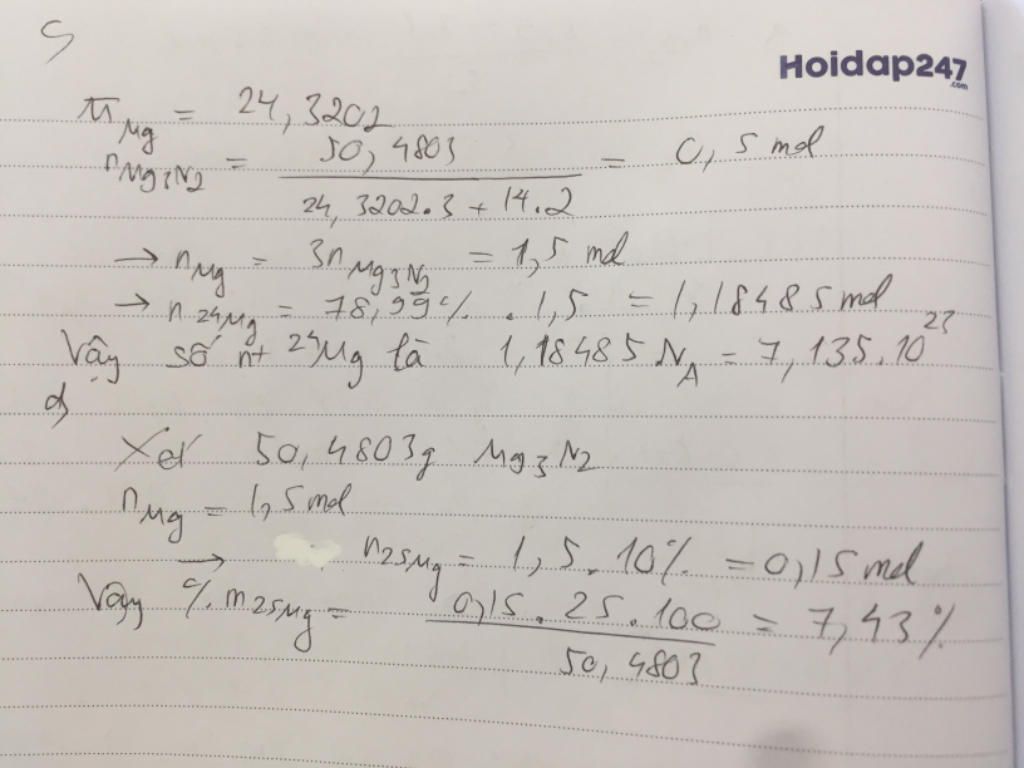 c)
Hoidap247
.com
M̅ Mg = 24,3202
n Mg3N2 = 50,4803 / (24,3202.3 + 14.2) = 0,5 mol
→ n Mg = 3n Mg3N2 = 1,5 mol
→ n 24Mg = 78,99% . 1,5 = 1,18485 mol
Vậy số nt 24Mg là 1,18485 NA = 7,135.10^23
d)
Xét 50,4803g Mg3N2
n Mg = 1,5 mol
→ n 25Mg = 1,5 . 10% = 0,15 mol
Vậy %m 25Mg = 0,15 . 25 . 100 / 50,4803 = 7,43%